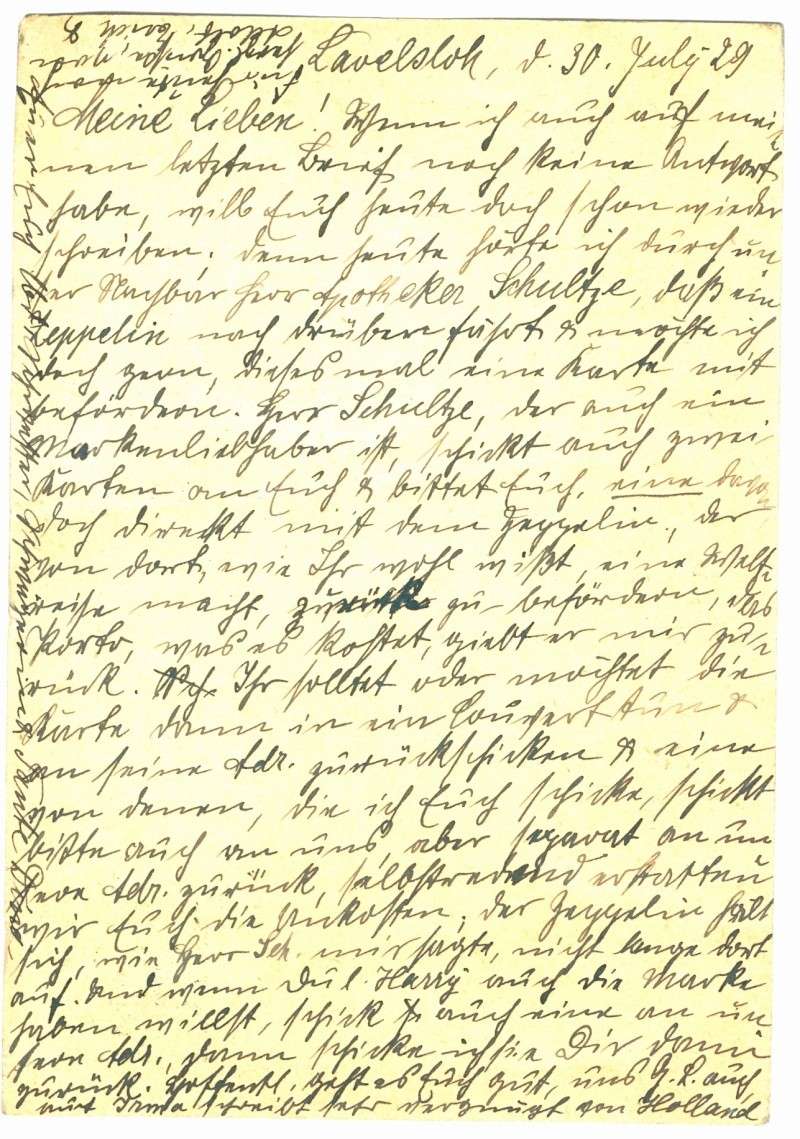 Lavelsloh, d. 30. July 29
Meine Lieben! Wenn ich auch auf mei-
nen letzten Brief noch keine Antwort
habe, will Euch heute doch schon wieder
schreiben. denn heute hörte ich durch un
ser Nachbar Herr Apotheker Schultze, daß ein
Zeppelin nach drüben fährt & möchte ich
doch gern, dieses mal eine Karte mit
befördern. Herr Schultze, der auch ein
Markenliebhaber ist, schickt auch zwei
Karten an Euch & bittet Euch, eine davon
doch direkt mit dem Zeppelin, der
von dort, wie Ihr wohl wißt, eine Welt-
reise macht, zurück zu befördern, das
Porto, was es kostet, giebt er mir zu-
rück. Ihr solltet oder möchtet die
Karte dann in ein Couvert tun &
an seine Adr. zurückschicken & eine
von denen, die ich Euch schicke, schickt
bitte auch an uns, aber separat an un
sere Adr. zurück, selbstredend erstatten
wir Euch die Unkosten, der Zeppelin hält
sich, wie Herr Sch. mir sagte, nicht lange dort
auf. Und wenn Du l. Harry auch die Marke
haben willst, schick auch eine an un
sere Adr., dann schicke ich sie Dir dann
zurück. Hoffentl. geht es Euch gut, uns G. L. auch,
auch Irma schreibt sehr vergnügt von Holland
Für heute noch
herzl. Grüße, von
Schwägerin & Tante